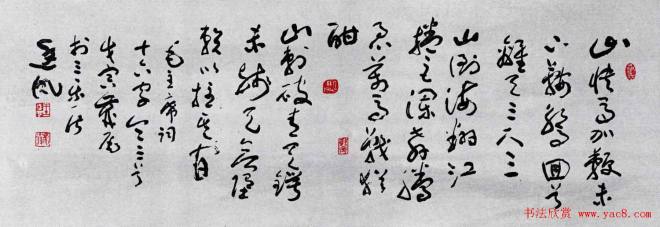 山快马加鞭未
下鞍惊回首
离天三尺三
山倒海翻江
卷巨澜奔腾
急万马战犹
酣
山刺破青天锷
未残天欲堕
赖以拄其间
毛主席词
十六字令三首
书法欣赏 www.yac8.com